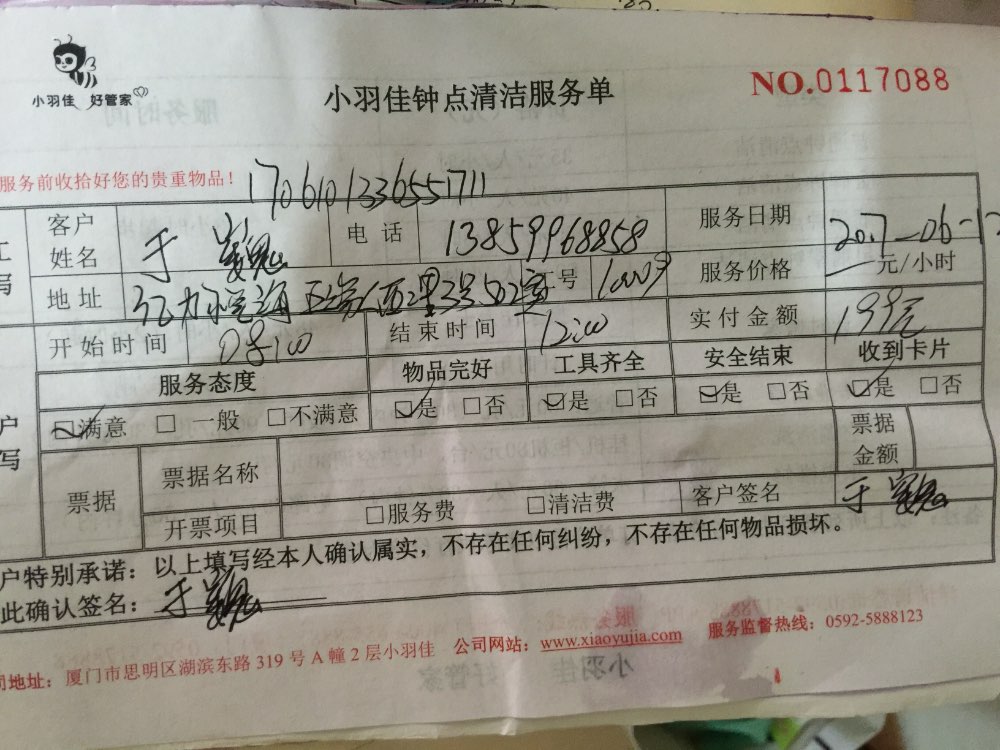 小羽佳 好管家
小羽佳钟点清洁服务单
NO.0117088
服务前收拾好您的贵重物品！
170610133655171 1
客户姓名 于 电话 13859968858 服务日期 2017-06-12
地址 3号502室 工号 10009 服务价格 元/小时
开始时间 08:00 结束时间 12:00 实付金额 199元
服务态度 物品完好 工具齐全 安全结束 收到卡片
满意 一般 不满意 是 否 是 否 是 否 是 否
票据 票据名称 票据金额
开票项目 服务费 清洁费 客户签名 于
户特别承诺：以上填写经本人确认属实，不存在任何纠纷，不存在任何物品损坏。
此确认签名：于
司地址：厦门市思明区湖滨东路 319 号 A 幢 2 层小羽佳 公司网站：www.xiaoyujia.com 服务监督热线：0592-5888123